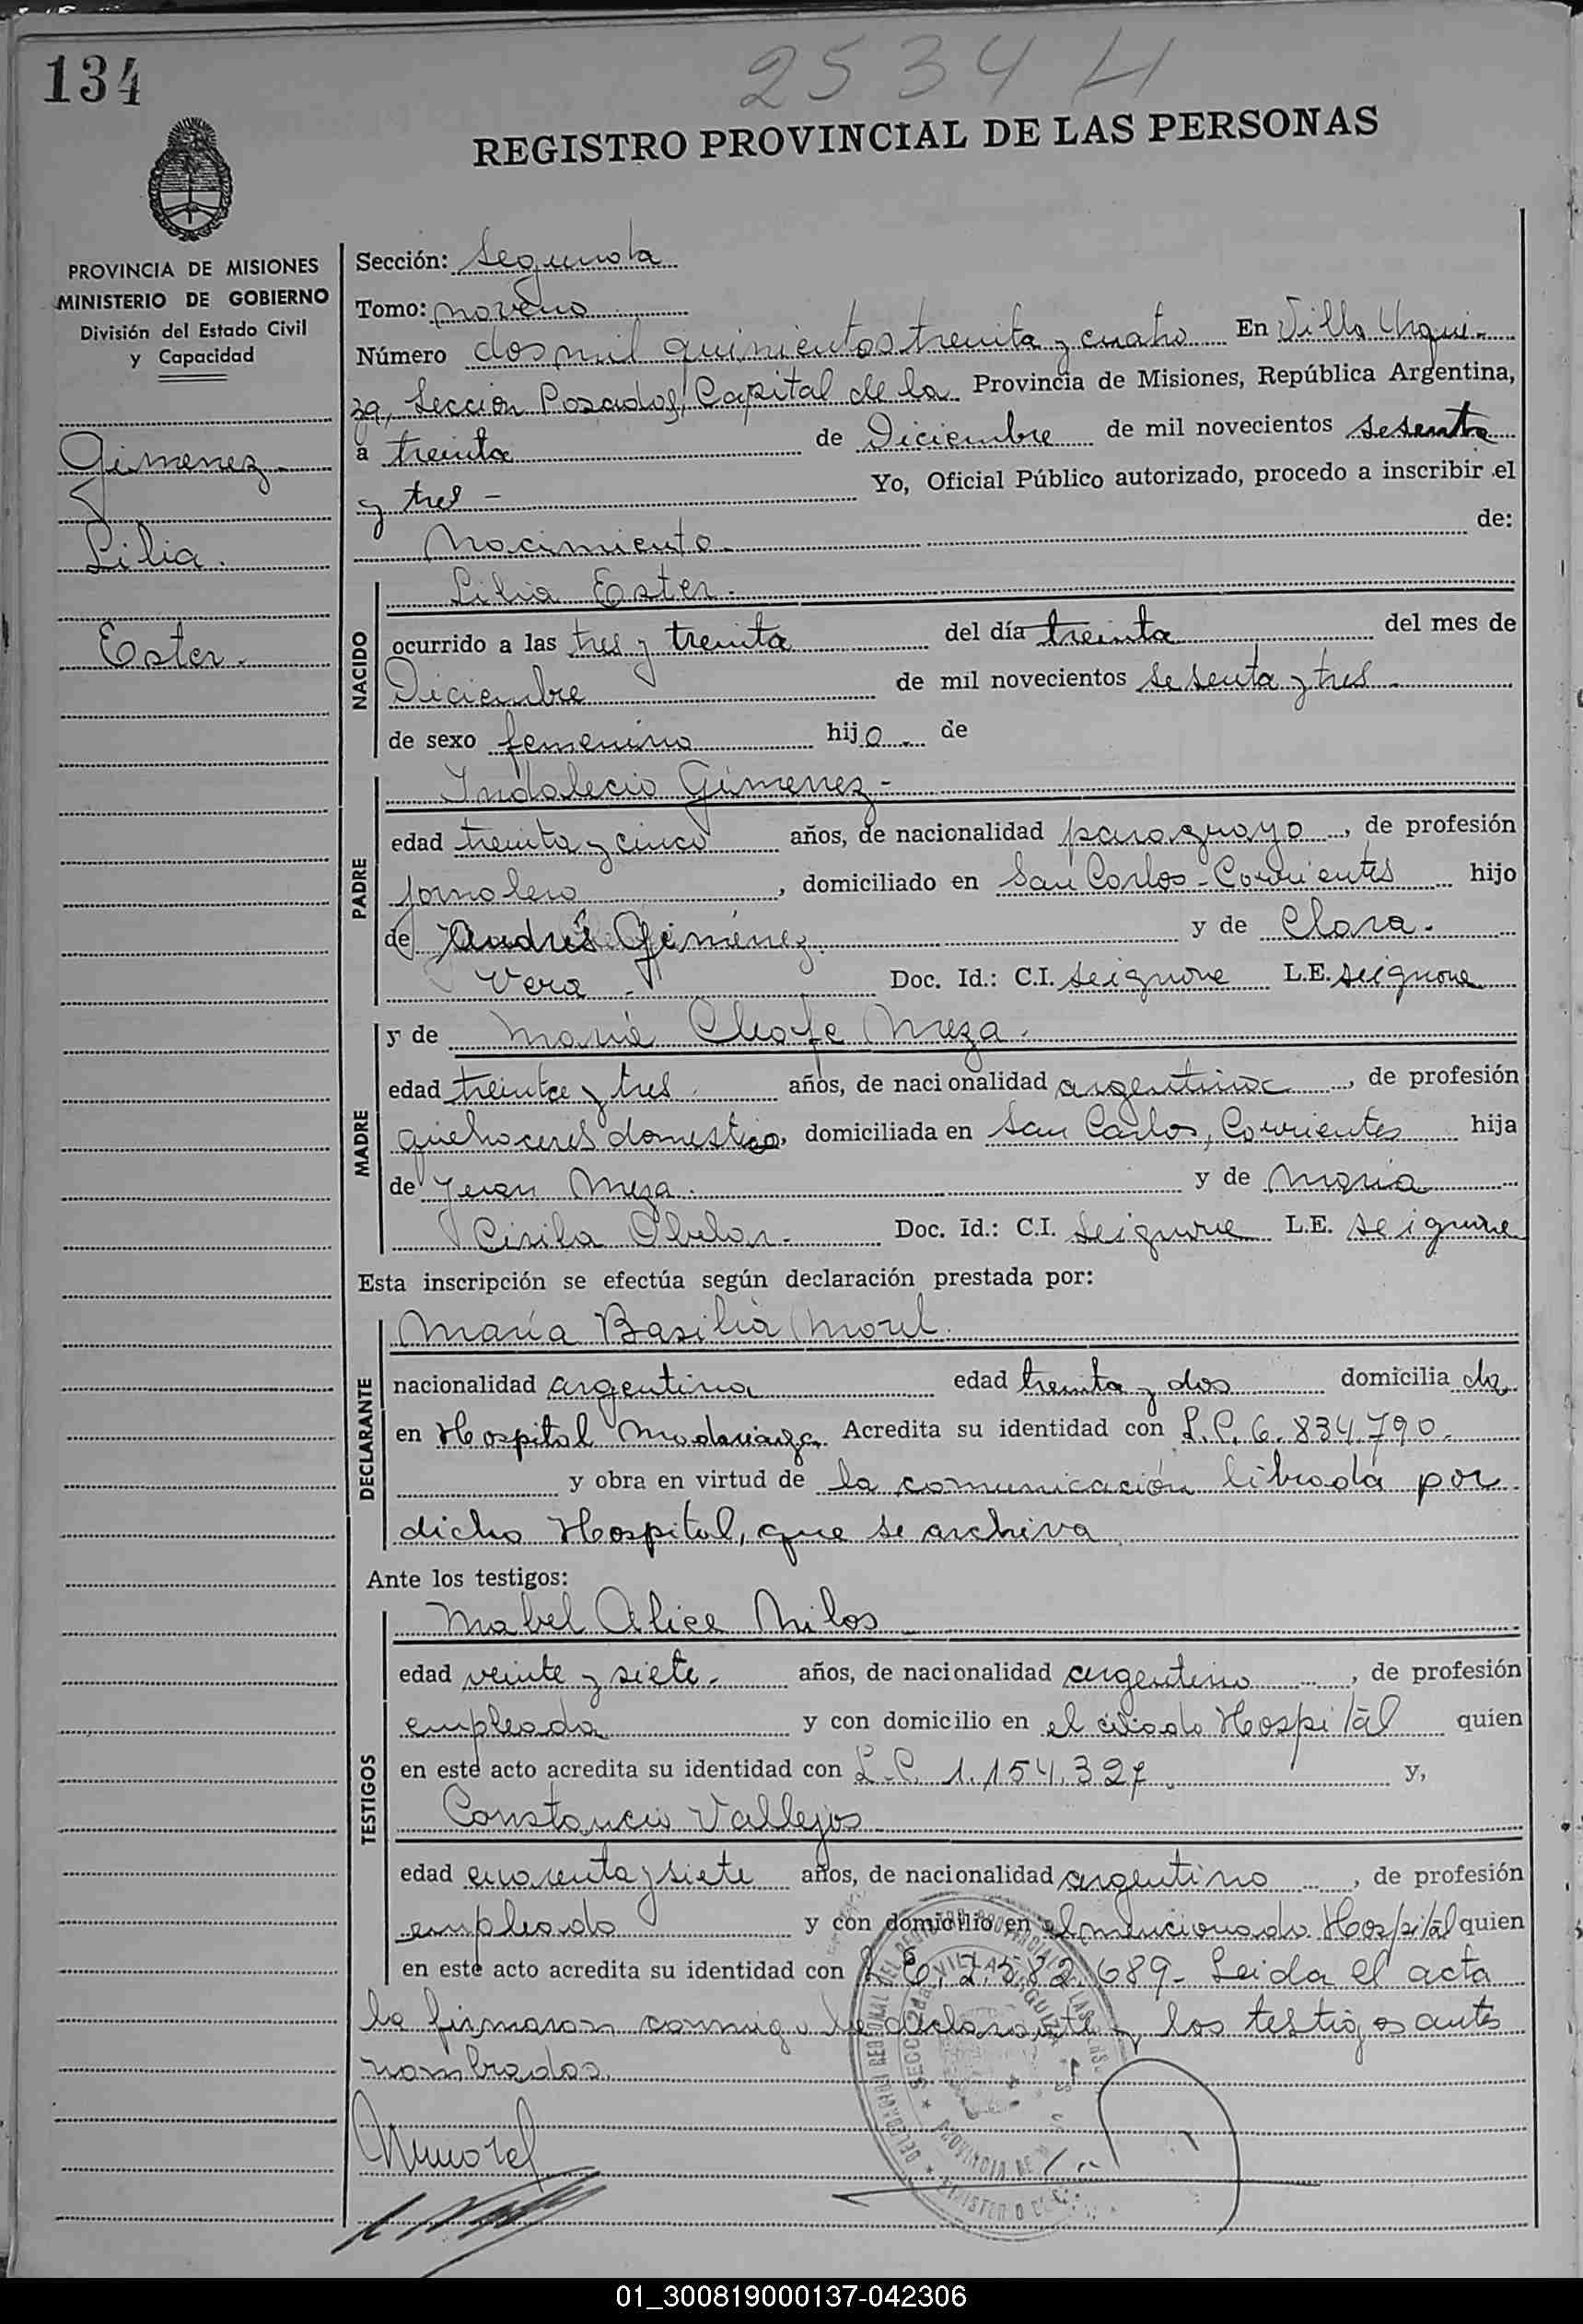 134
2534 H
REGISTRO PROVINCIAL DE LAS PERSONAS
PROVINCIA DE MISIONES
MINISTERIO DE GOBIERNO
División del Estado Civil
y Capacidad
Gimenez
Lilia.
Ester.
Sección: Segunda
Tomo: noveno
Número dos mil quinientos treinta y cuatro En Villa Urqui-
za, Sección Posadas, Capital de la Provincia de Misiones, República Argentina,
a treinta de Diciembre de mil novecientos sesenta
y tres - Yo, Oficial Público autorizado, procedo a inscribir el
Nacimiento de:
NACIDO
Lilia Ester.
ocurrido a las tres y treinta del día treinta del mes de
Diciembre de mil novecientos sesenta y tres
de sexo femenino hija de
PADRE
Indalecio Gimenez -
edad treinta y cinco años, de nacionalidad paraguayo, de profesión
jornalero, domiciliado en San Carlos - Corrientes hijo
de Andrés Giménez y de Clara
Vera - Doc. Id.: C.I. seignore L.E. seignora
MADRE
y de María Meza.
edad treinta y tres años, de nacionalidad argentina, de profesión
quehaceres domesticos, domiciliada en San Carlos, Corrientes hija
de Juan Meza. y de María
Cirila Doc. Id.: C.I. seignore L.E. seignore
Esta inscripción se efectúa según declaración prestada por:
DECLARANTE
María Basilia Morel.
nacionalidad argentina edad treinta y dos domicilia da
en Hospital Madariaga. Acredita su identidad con L.C. 6.834.790.
y obra en virtud de la comunicación librada por
dicho Hospital, que se archiva
Ante los testigos:
TESTIGOS
Mabel Alice Milos
edad veinte y siete. años, de nacionalidad argentina, de profesión
empleada y con domicilio en el citado Hospital quien
en este acto acredita su identidad con L.C. 1.154.327 y,
Constancio Vallejos
edad cuarenta y siete años, de nacionalidad argentino, de profesión
empleado y con domicilio en el mencionado Hospital quien
en este acto acredita su identidad con 2.582.689 - Leida el acta
la firmaron conmigo la declarante y los testigos antes
nombrados.
Mmorel
01_300819000137-042306